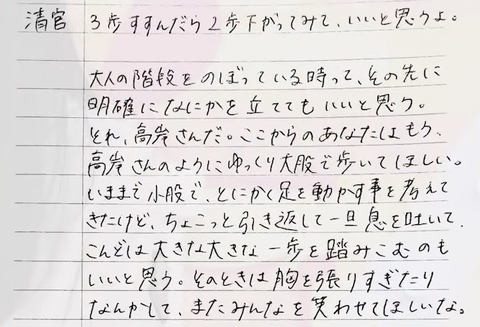 清官 3歩すすんだら2歩下がってみて、いいと思うよ。
大人の階段をのぼっている時って、その先に
明確になにかを立ててもいいと思う。
それ、高岸さんだ。ここからのあなたはもう、
高岸さんのようにゆっくり大股で歩いてほしい。
いままで小股で、とにかく足を動かす事を考えて
きたけど、ちょこっと引き返して一旦息を吐いて、
こんどは大きな大きな一歩を踏みこむのも
いいと思う。そのときは胸を張りすぎたり
なんかして、またみんなを笑わせてほしいな。